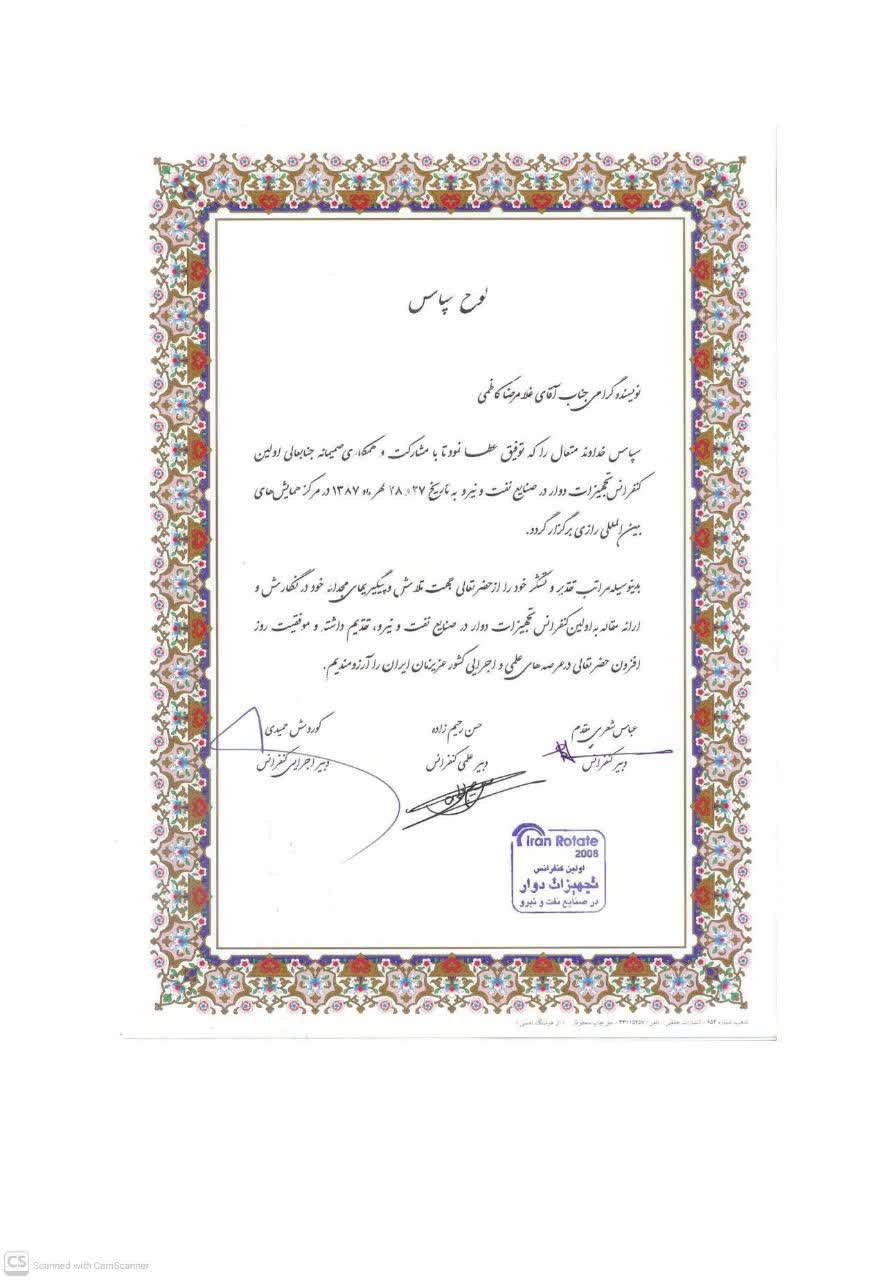 لوح سپاس
نویسنده گرامی جناب آقای غلامرضا کاظمی
سپاس خداوند متعال را که توفیق عطا نمود تا با مشارکت و همکاری صمیمانه جنابعالی اولین
کنفرانس تجهیزات دوار در صنایع نفت و نیرو به تاریخ ۲۷ و ۲۸ مهر ماه ۱۳۸۷ در مرکز همایش‌های
بین‌المللی رازی برگزار گردد.
بدینوسیله مراتب تقدیر و تشکر خود را از حضرتعالی جهت تلاش و پیگیریهای مجدانه خود در نگارش و
ارائه مقاله به اولین کنفرانس تجهیزات دوار در صنایع نفت و نیرو، تقدیم داشته و موفقیت روز
افزون حضرتعالی در عرصه‌های علمی و اجرایی کشور عزیزمان ایران را آرزومندیم.
عباس شعری مقدم
دبیر کنفرانس
حسن رحیم زاده
دبیر علمی کنفرانس
کوروش حمیدی
دبیر اجرایی کنفرانس
Iran Rotate
2008
اولین کنفرانس
تجهیزات دوار
در صنایع نفت و نیرو
CS Scanned with CamScanner